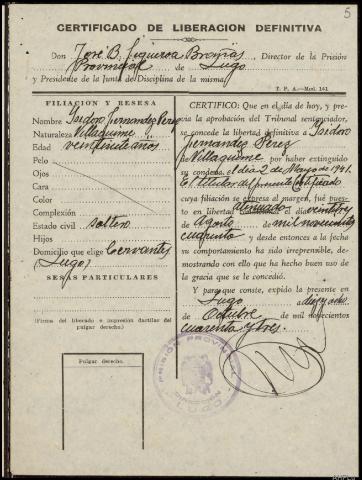 5
CERTIFICADO DE LIBERACIÓN DEFINITIVA
Don José B. Figueroa Breijas, Director de la Prisión
Provincial de Lugo
y Presidente de la Junta de Disciplina de la misma,
T. P. A.—Mod. 141
FILIACIÓN Y RESEÑA
Nombre Isidoro Fernandez Perez
Naturaleza Villaquime
Edad veintisiete años.
Pelo
Ojos
Cara
Color
Complexión
Estado civil soltero
Hijos
Domicilio que elige Cervantes
(Lugo)
SEÑAS PARTICULARES
(Firma del liberado e impresión dactilar del
pulgar derecho.)
Pulgar derecho.
CERTIFICO: Que en el día de hoy, y pre-
via aprobación del Tribunal sentenciador,
se concede la libertad definitiva a Isidoro
Fernandez Perez
de Villaquime por haber extinguido
su condena, el dia 2 de Mayo de 1941.
El titular del presente Certificado
cuya filiación se expresa al margen, fué pues-
to en libertad el día veintitres
de Agosto de mil novecientos
cuarenta y desde entonces a la fecha
su comportamiento ha sido irreprensible, de-
mostrando con ello que ha hecho buen uso
de la gracia que se le concedió.
Y para que conste, expido la presente en
Lugo a dieciocho
de Octubre de mil novecientos
cuarenta y tres.
PRISIÓN PROVINCIAL
LUGO